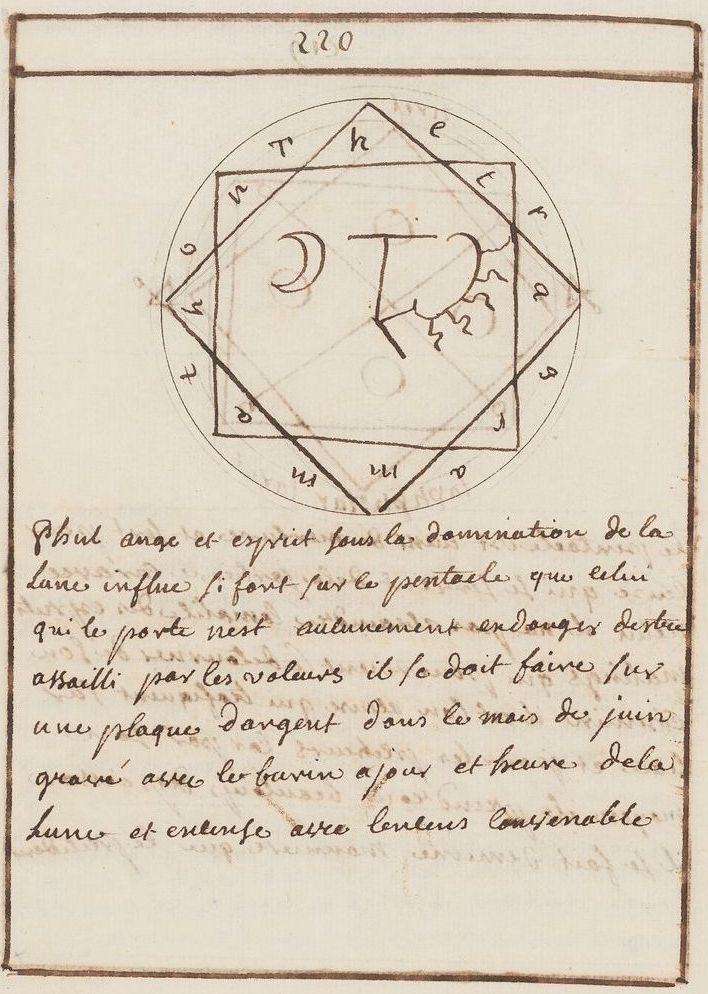 220
T h e t r a g r a m m a t h o n
Phul ange et esprit sous la domination de la
Lune influe si fort sur le pentacle que celui
qui le porte nést aucunement endanger destre
assailli par les voleurs il se doit faire sur
une plaque dargent dans le mais de juin
gravé avec le burin ajour et heure dela
Lune et encense avec lencens convenable